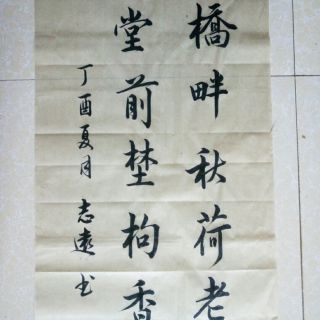 橋畔秋荷老
堂前埜枸香
丁酉夏月 志遠书